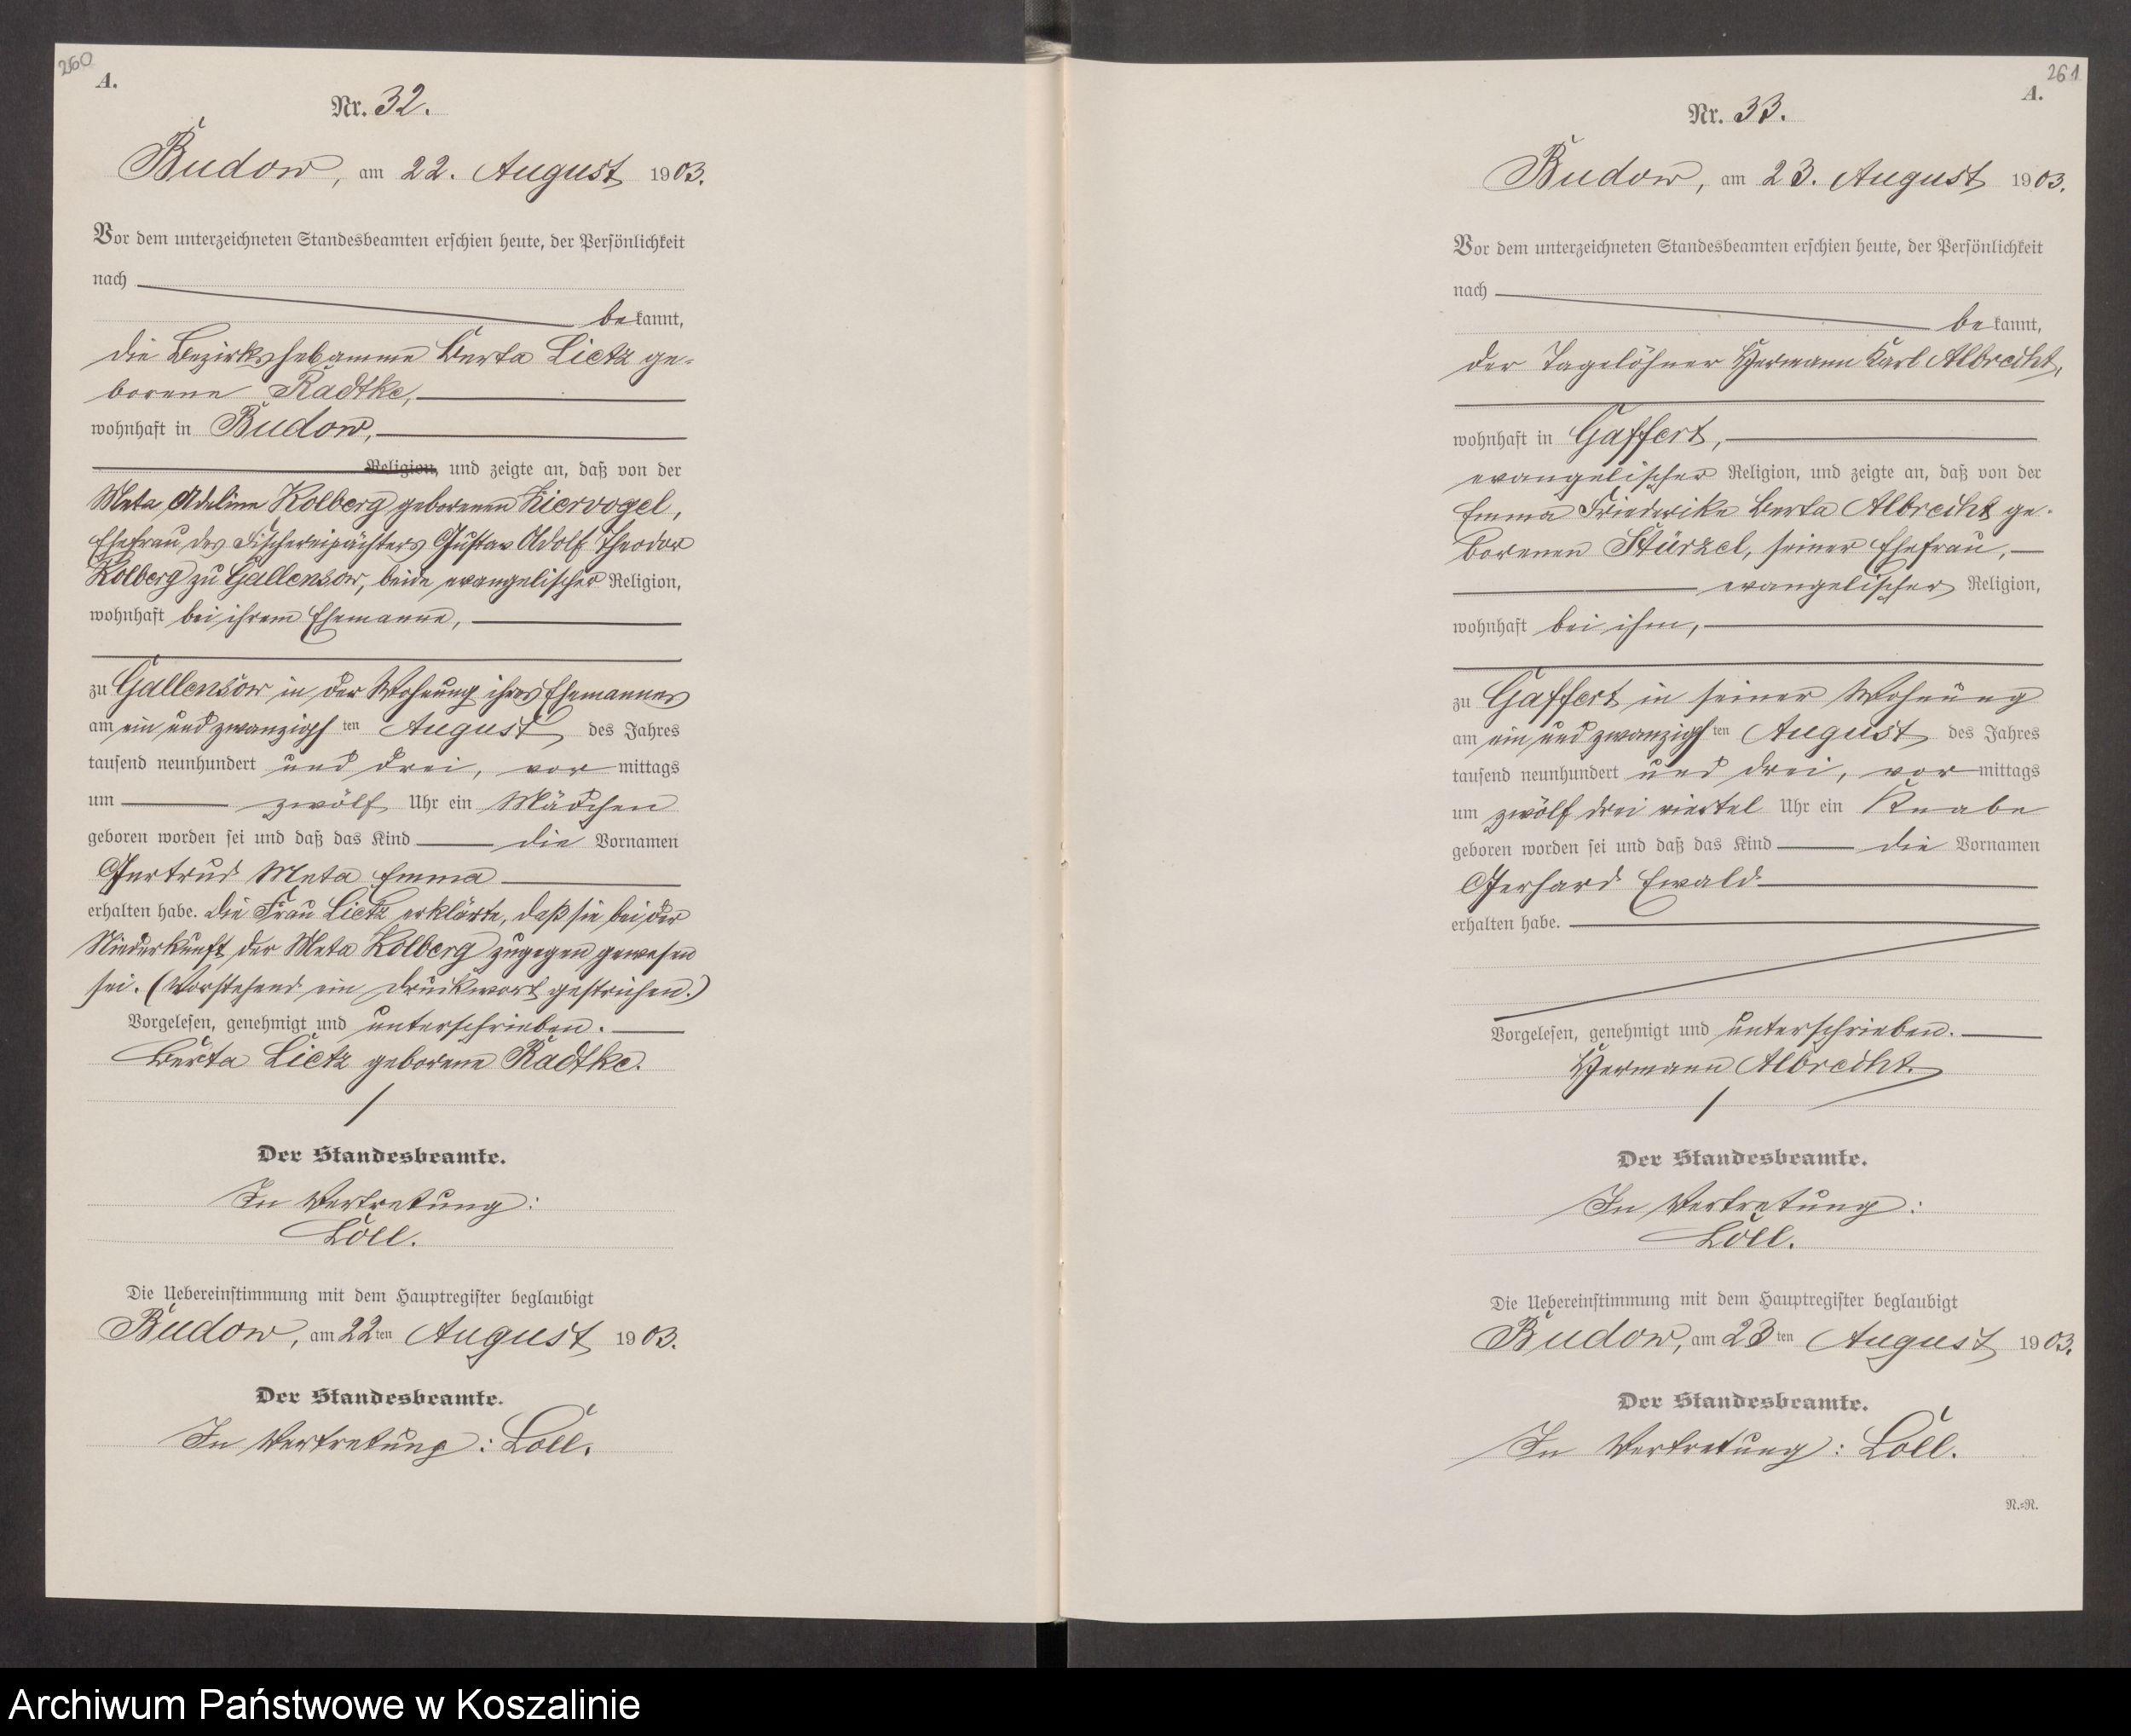 260
A.
Nr. 32.
Budow, am 22. August 1903.
Vor dem unterzeichneten Standesbeamten erschien heute, der Persönlichkeit
nach
bekannt,
die Bezirkshebamme Berta Lietz ge-
borene Radtke,
wohnhaft in Budow,
Religion, und zeigte an, daß von der
Meta Adeline Kolberg geborenen Ziervogel,
Ehefrau des Fischereipächters Gustav Adolf Theodor
Kolberg zu Gallensow, beide evangelischer Religion,
wohnhaft bei ihrem Ehemanne,
zu Gallensow in der Wohnung ihres Ehemannes
am ein und zwanzigsten August des Jahres
tausend neunhundert und drei, vormittags
um zwölf Uhr ein Mädchen
geboren worden sei und daß das Kind die Vornamen
Gertrud Meta Emma
erhalten habe. Die Frau Lietz erklärte, daß sie bei der
Niederkunft der Meta Kolberg zugegen gewesen
sei. (Vorstehend ein Druckwort gestrichen.)
Vorgelesen, genehmigt und unterschrieben.
Berta Lietz geborene Radtke.
Der Standesbeamte.
In Vertretung:
Löll.
Die Uebereinstimmung mit dem Hauptregister beglaubigt
Budow, am 22ten August 1903.
Der Standesbeamte.
In Vertretung: Löll.
261
A.
Nr. 33.
Budow, am 23. August 1903.
Vor dem unterzeichneten Standesbeamten erschien heute, der Persönlichkeit
nach
bekannt,
der Tagelöhner Hermann Karl Albrecht,
wohnhaft in Gaffert,
evangelischer Religion, und zeigte an, daß von der
Emma Friederike Berta Albrecht ge-
borenen Stürzel, seiner Ehefrau,
evangelischer Religion,
wohnhaft bei ihm,
zu Gaffert in seiner Wohnung
am ein und zwanzigsten August des Jahres
tausend neunhundert und drei, vormittags
um zwölf drei viertel Uhr ein Knabe
geboren worden sei und daß das Kind die Vornamen
Gerhard Ewald
erhalten habe.
Vorgelesen, genehmigt und unterschrieben.
Hermann Albrecht.
Der Standesbeamte.
In Vertretung:
Löll.
Die Uebereinstimmung mit dem Hauptregister beglaubigt
Budow, am 23ten August 1903.
Der Standesbeamte.
In Vertretung: Löll.
N.=N.
Archiwum Państwowe w Koszalinie